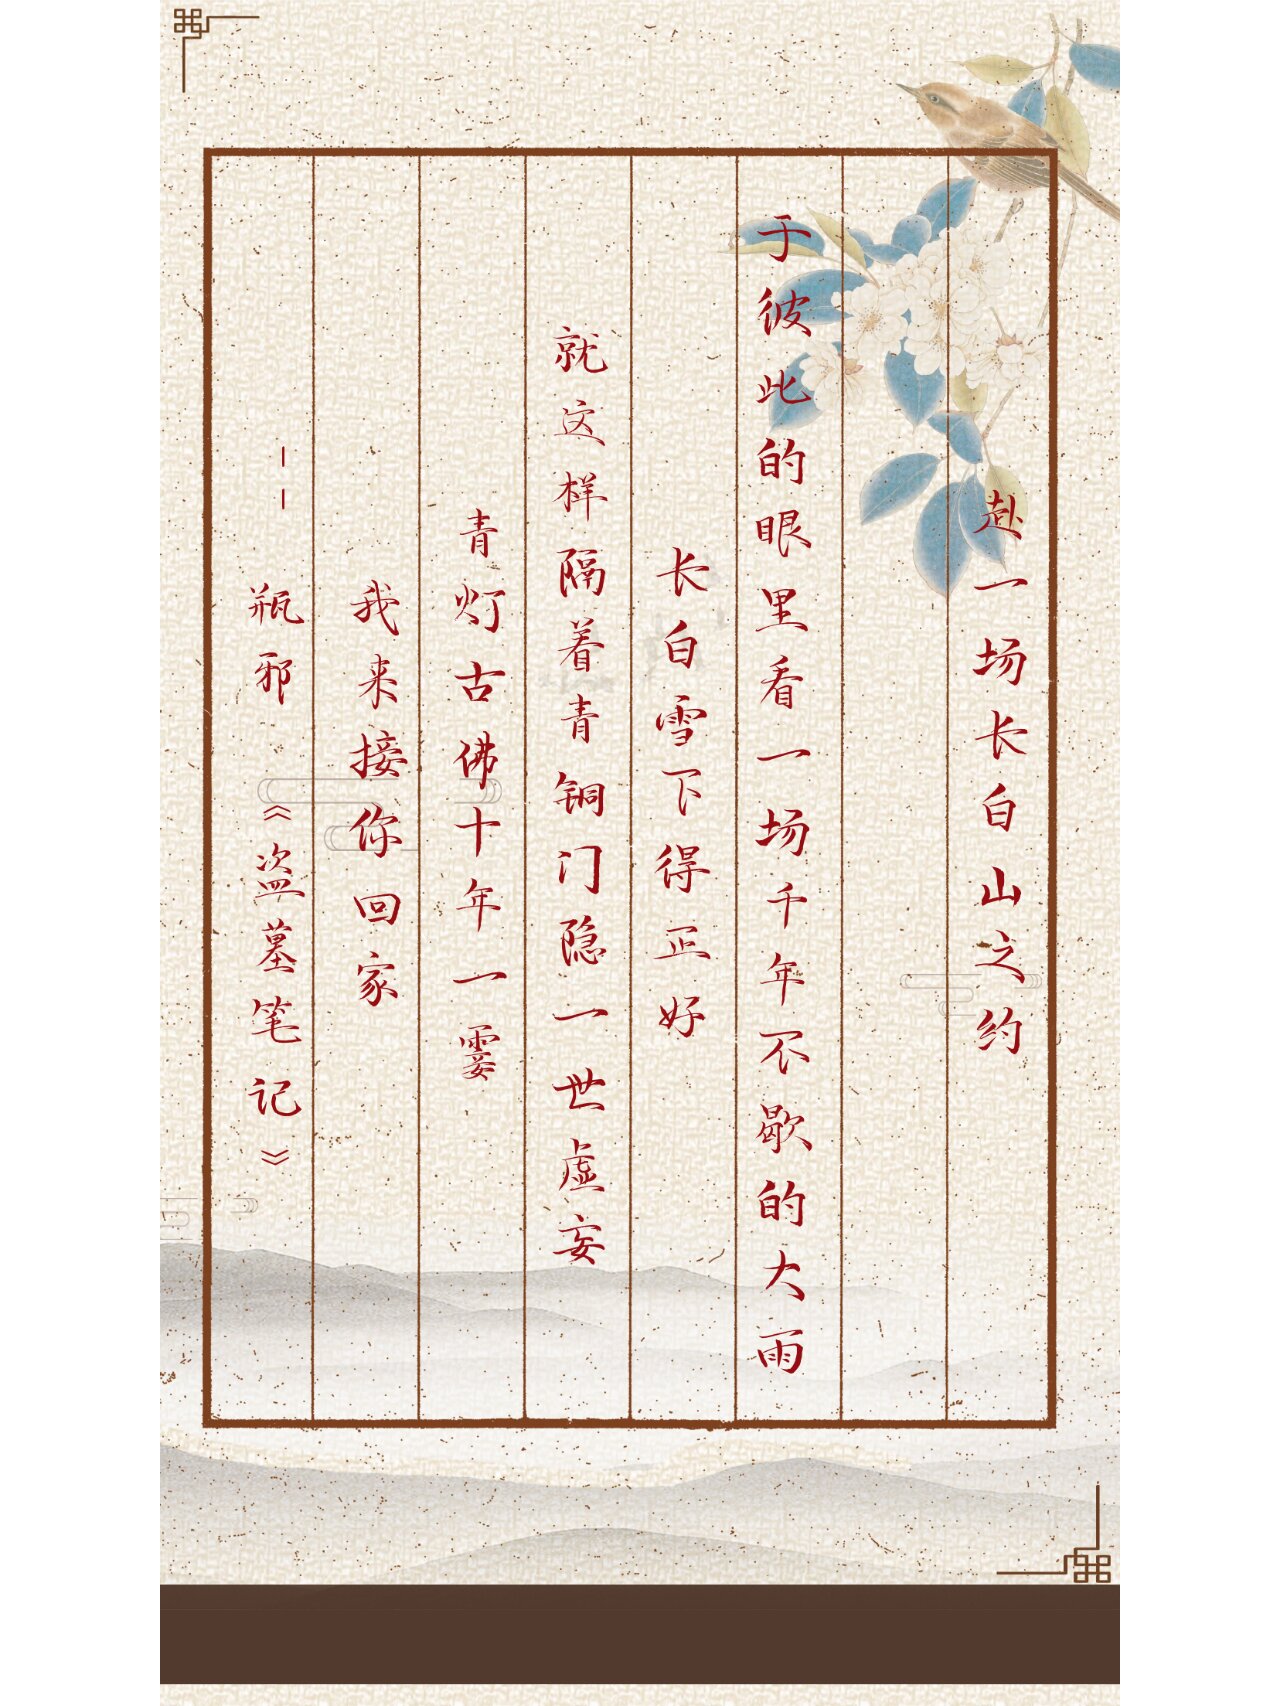 赴一场长白山之约
于彼此的眼里看一场千年不歇的大雨
长白雪下得正好
就这样隔着青铜门隐一世虚妄
青灯古佛十年一霎
我来接你回家
--瓶邪《盗墓笔记》